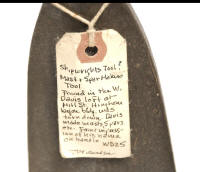 Shipwrights Tool?
Mast & Spar Makers
Tool
Found in the W.
Davis loft at
Mill St. Hingham
before bldg. was
torn down. Davis
made masts, Spars
etc. Faint impress-
ion of his name
on handle
WB25